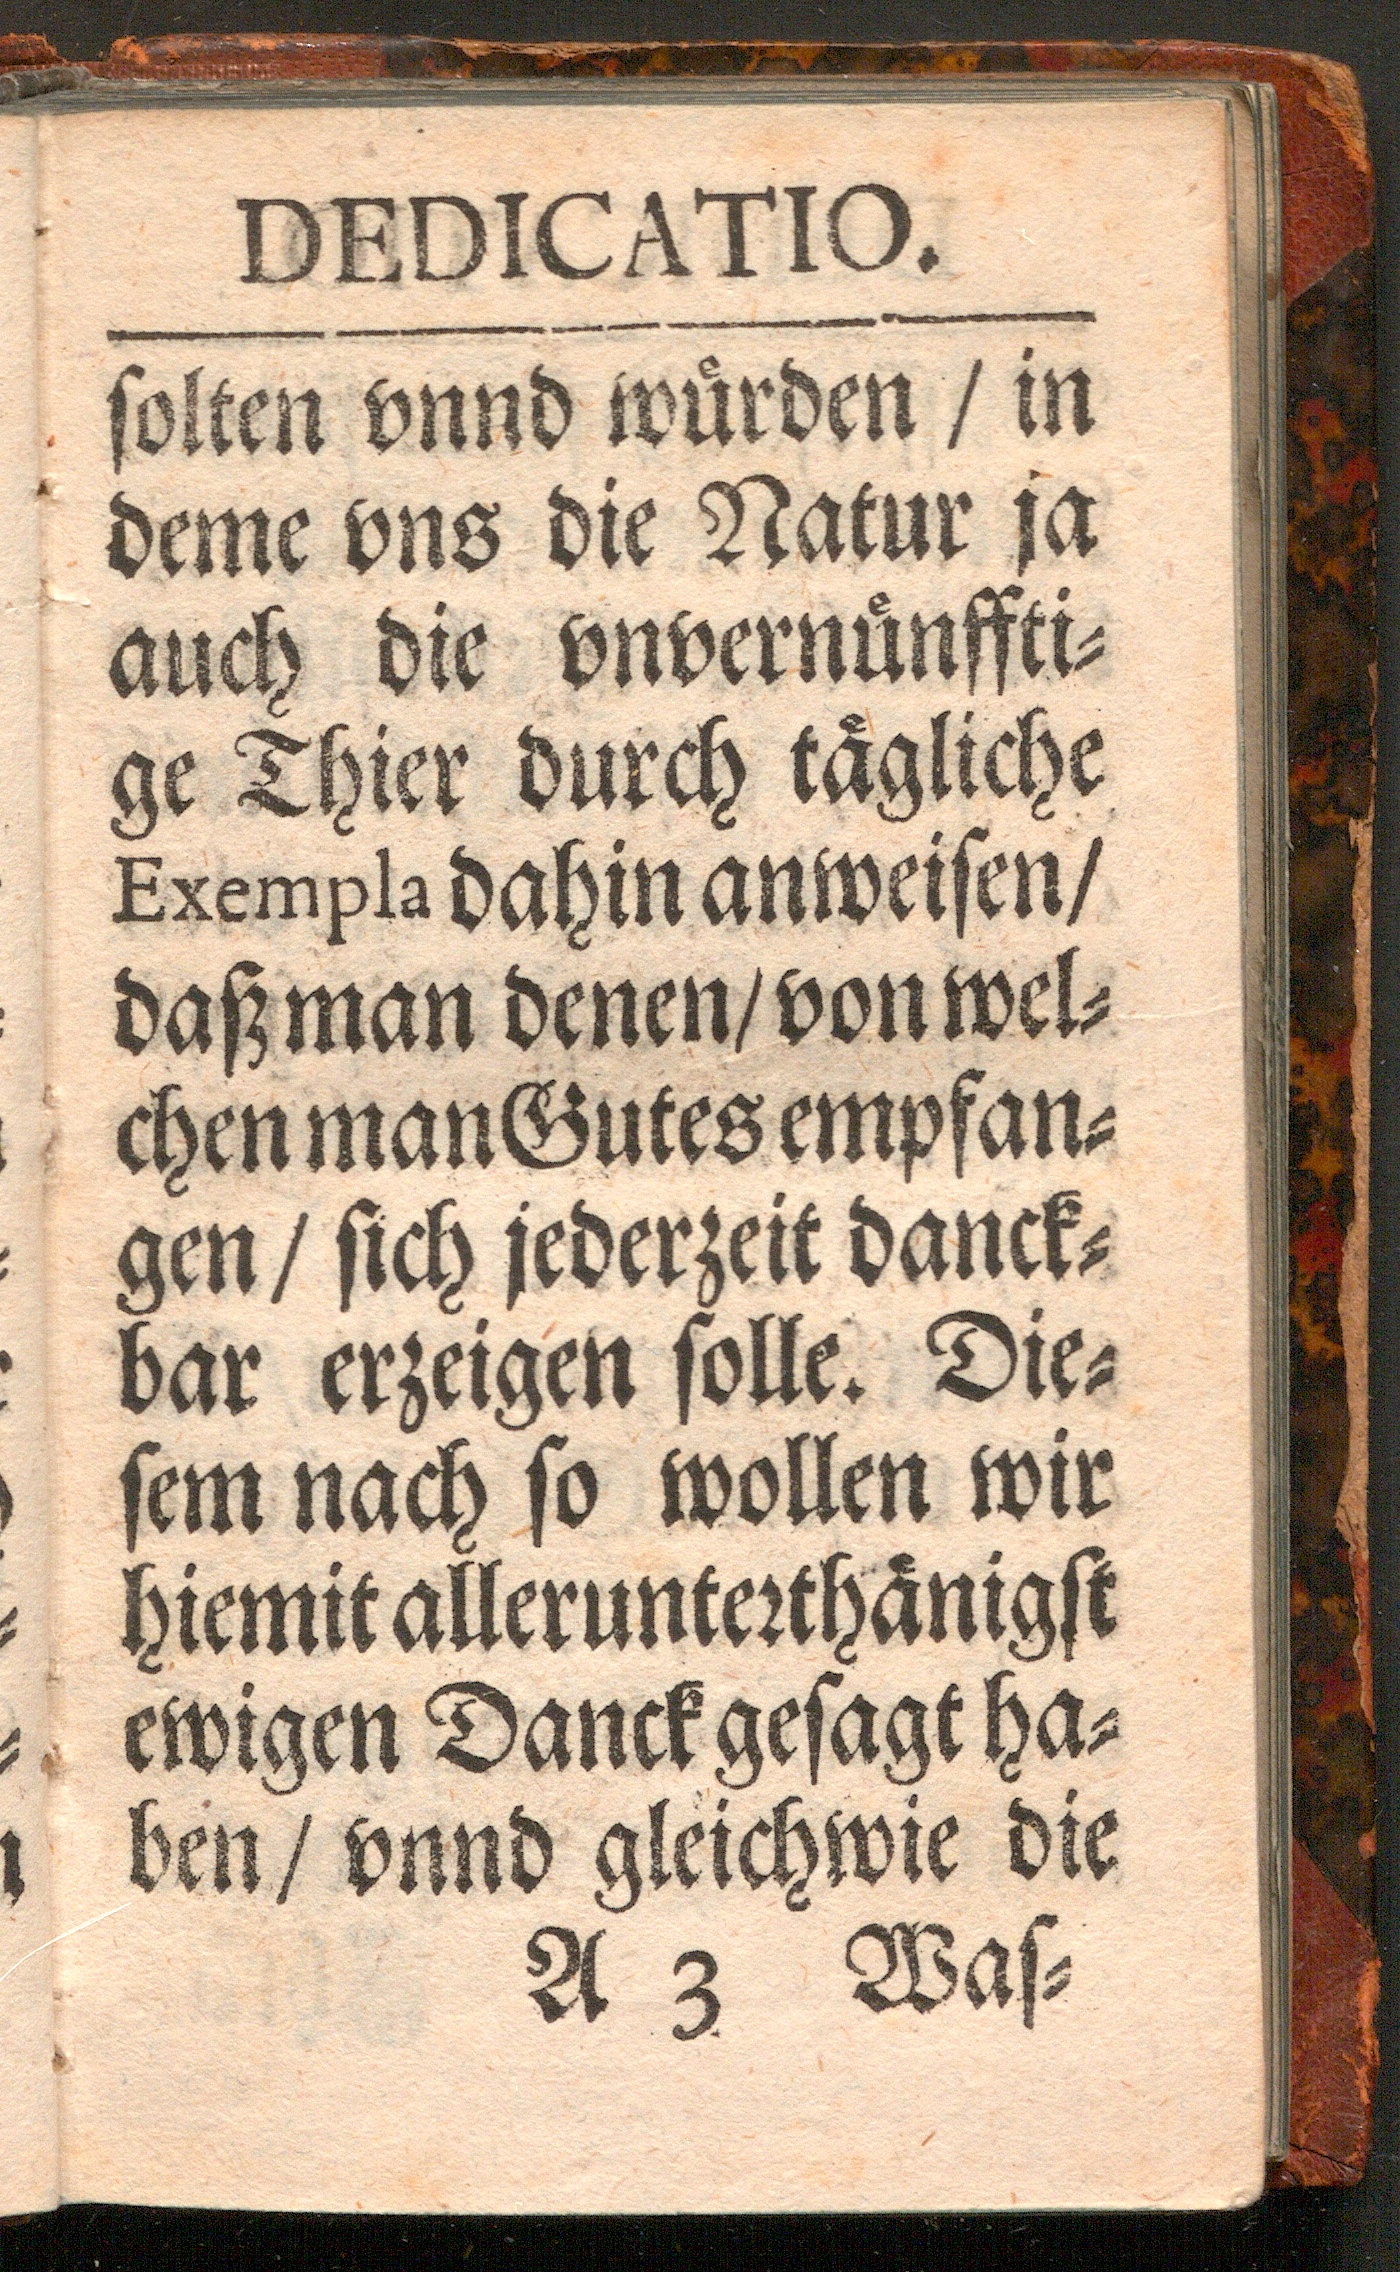 DEDICATIO.
ſolten vnnd wuͤrden / in
deme vns die Natur ja
auch die vnvernuͤnffti⸗
ge Thier durch taͤgliche
Exempla dahin anweiſen/
daß man denen/ von wel⸗
chen man Gutes empfan⸗
gen/ ſich jederzeit danck⸗
bar erzeigen ſolle. Die⸗
ſem nach ſo wollen wir
hiemit allerunteꝛthaͤnigſt
ewigen Danck geſagt ha⸗
ben/ vnnd gleichwie die
A 3 Waſ⸗